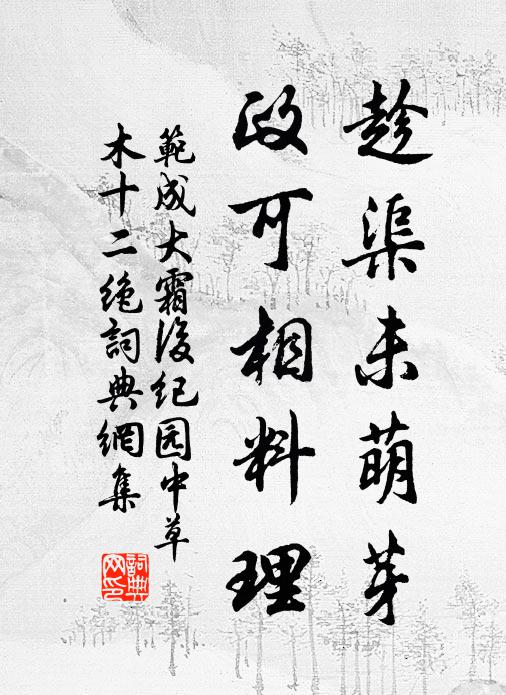 趁渠未萌芽
政可相料理
範成大霜後纪园中草
木十二绝詞典網集
詞典
网印